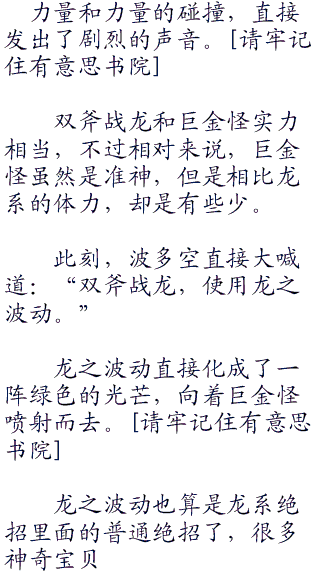 力量和力量的碰撞，直接
发出了剧烈的声音。[请牢记
住有意思书院]
双斧战龙和巨金怪实力
相当，不过相对来说，巨金
怪虽然是准神，但是相比龙
系的体力，却是有些少。
此刻，波多空直接大喊
道：“双斧战龙，使用龙之
波动。”
龙之波动直接化成了一
阵绿色的光芒，向着巨金怪
喷射而去。[请牢记住有意思
书院]
龙之波动也算是龙系绝
招里面的普通绝招了，很多
神奇宝贝